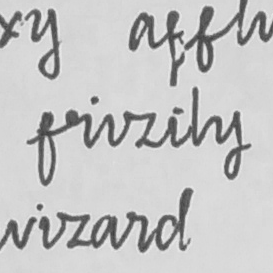 xy affl
frizily
wizard